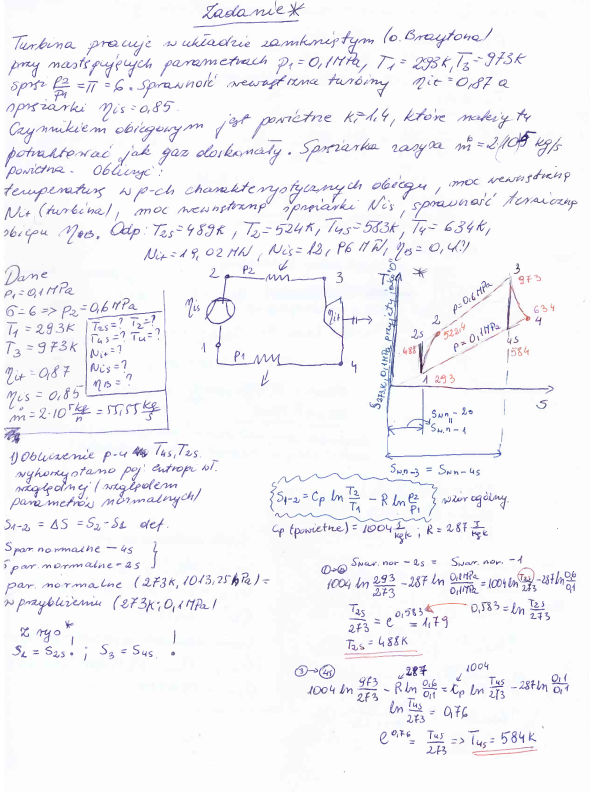 Zadanie*
Turbina pracuje w układzie zamkniętym (o. Braytona)
przy następujących parametrach p1=0,1MPa, T1=293K, T3=973K
spręż p2/p1=π=6. Sprawność wewnętrzna turbiny ηit=0,87 a
sprężarki ηis=0,85.
Czynnikiem obiegowym jest powietrze κ=1,4, które należy tu
potraktować jak gaz doskonały. Sprężarka zasysa ṁ=2·10^5 kg/s
powietrza. Obliczyć:
temperaturę w p-ch charakterystycznych obiegu, moc wewnętrzną
Nit (turbina), moc wewnętrzną sprężarki Nis, sprawność termiczną
obiegu ηB. Odp: T2s=489K, T2=524K, T4s=583K, T4=634K,
Nit=19,02MW, Nis=12,96MW, ηB=0,4.
Dane
p1=0,1MPa
σ=6 => p2=0,6MPa
T1=293K
T3=973K
ηit=0,87
ηis=0,85
ṁ=2·10^5 kg/h=55,55 kg/s
T2s=? T2=?
T4s=? T4=?
Nit=?
Nis=?
ηB=?
2 p2 3
ηis ηit
1 p1 4
T * 3
973
p=0,6MPa
2s 2 522,4
488
p=0,1MPa
634
4
4s
584
1 293
S
Swn-2s
=
Swn-1
Swn-3 = Swn-4s
1) Obliczenie p-u T4s, T2s.
wykorzystano poj. entropii wł.
względnej (względem
parametrów normalnych)
S1-2 = ΔS = S2-S1 def.
Spar.normalne-4s
Spar.normalne-2s
par. normalne (273K, 1013,25hPa)=
w przybliżeniu (273K; 0,1MPa)
z rys*
S1 = S2s ; S3 = S4s
S1-2 = Cp ln T2/T1 - R ln p2/p1 wzór ogólny
Cp (powietrze) = 1004 J/kgK ; R = 287 J/kgK
Swar.nor-2s = Swar.nor-1
1004 ln 293/273 - 287 ln 0,1MPa/0,1MPa = 1004 ln T2s/273 - 287 ln 0,6/0,1
T2s/273 = e^0,583 = 1,79
0,583 = ln T2s/273
T2s = 488K
3 → 4s
287 1004
1004 ln 973/273 - R ln 0,6/0,1 = Cp ln T4s/273 - 287 ln 0,1/0,1
ln T4s/273 = 0,76
e^0,76 = T4s/273 => T4s = 584K